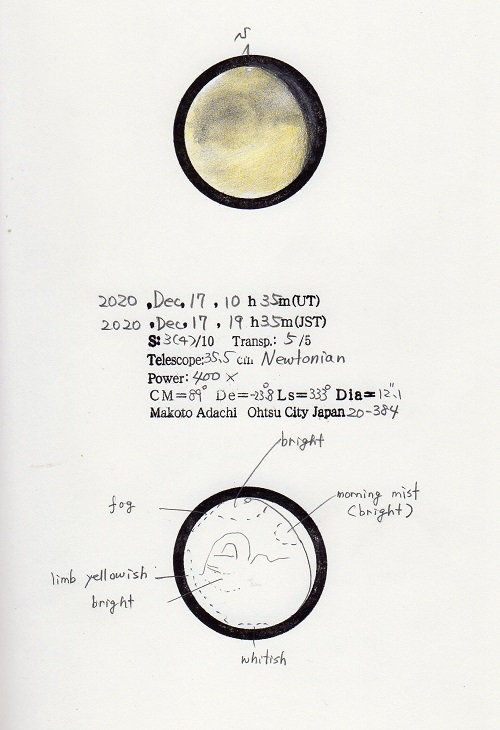 N
2020 , Dec, 17 , 10 h 35m(UT)
2020 , Dec, 17 , 19 h 35m(JST)
S: 3(4)/10 Transp.: 5/5
Telescope: 35.5 cm Newtonian
Power: 400 ×
CM=89° De=-23.8° Ls=333° Dia=12.1"
Makoto Adachi Ohtsu City Japan 20-384
bright
fog
morning mist
(bright)
limb yellowish
bright
whitish